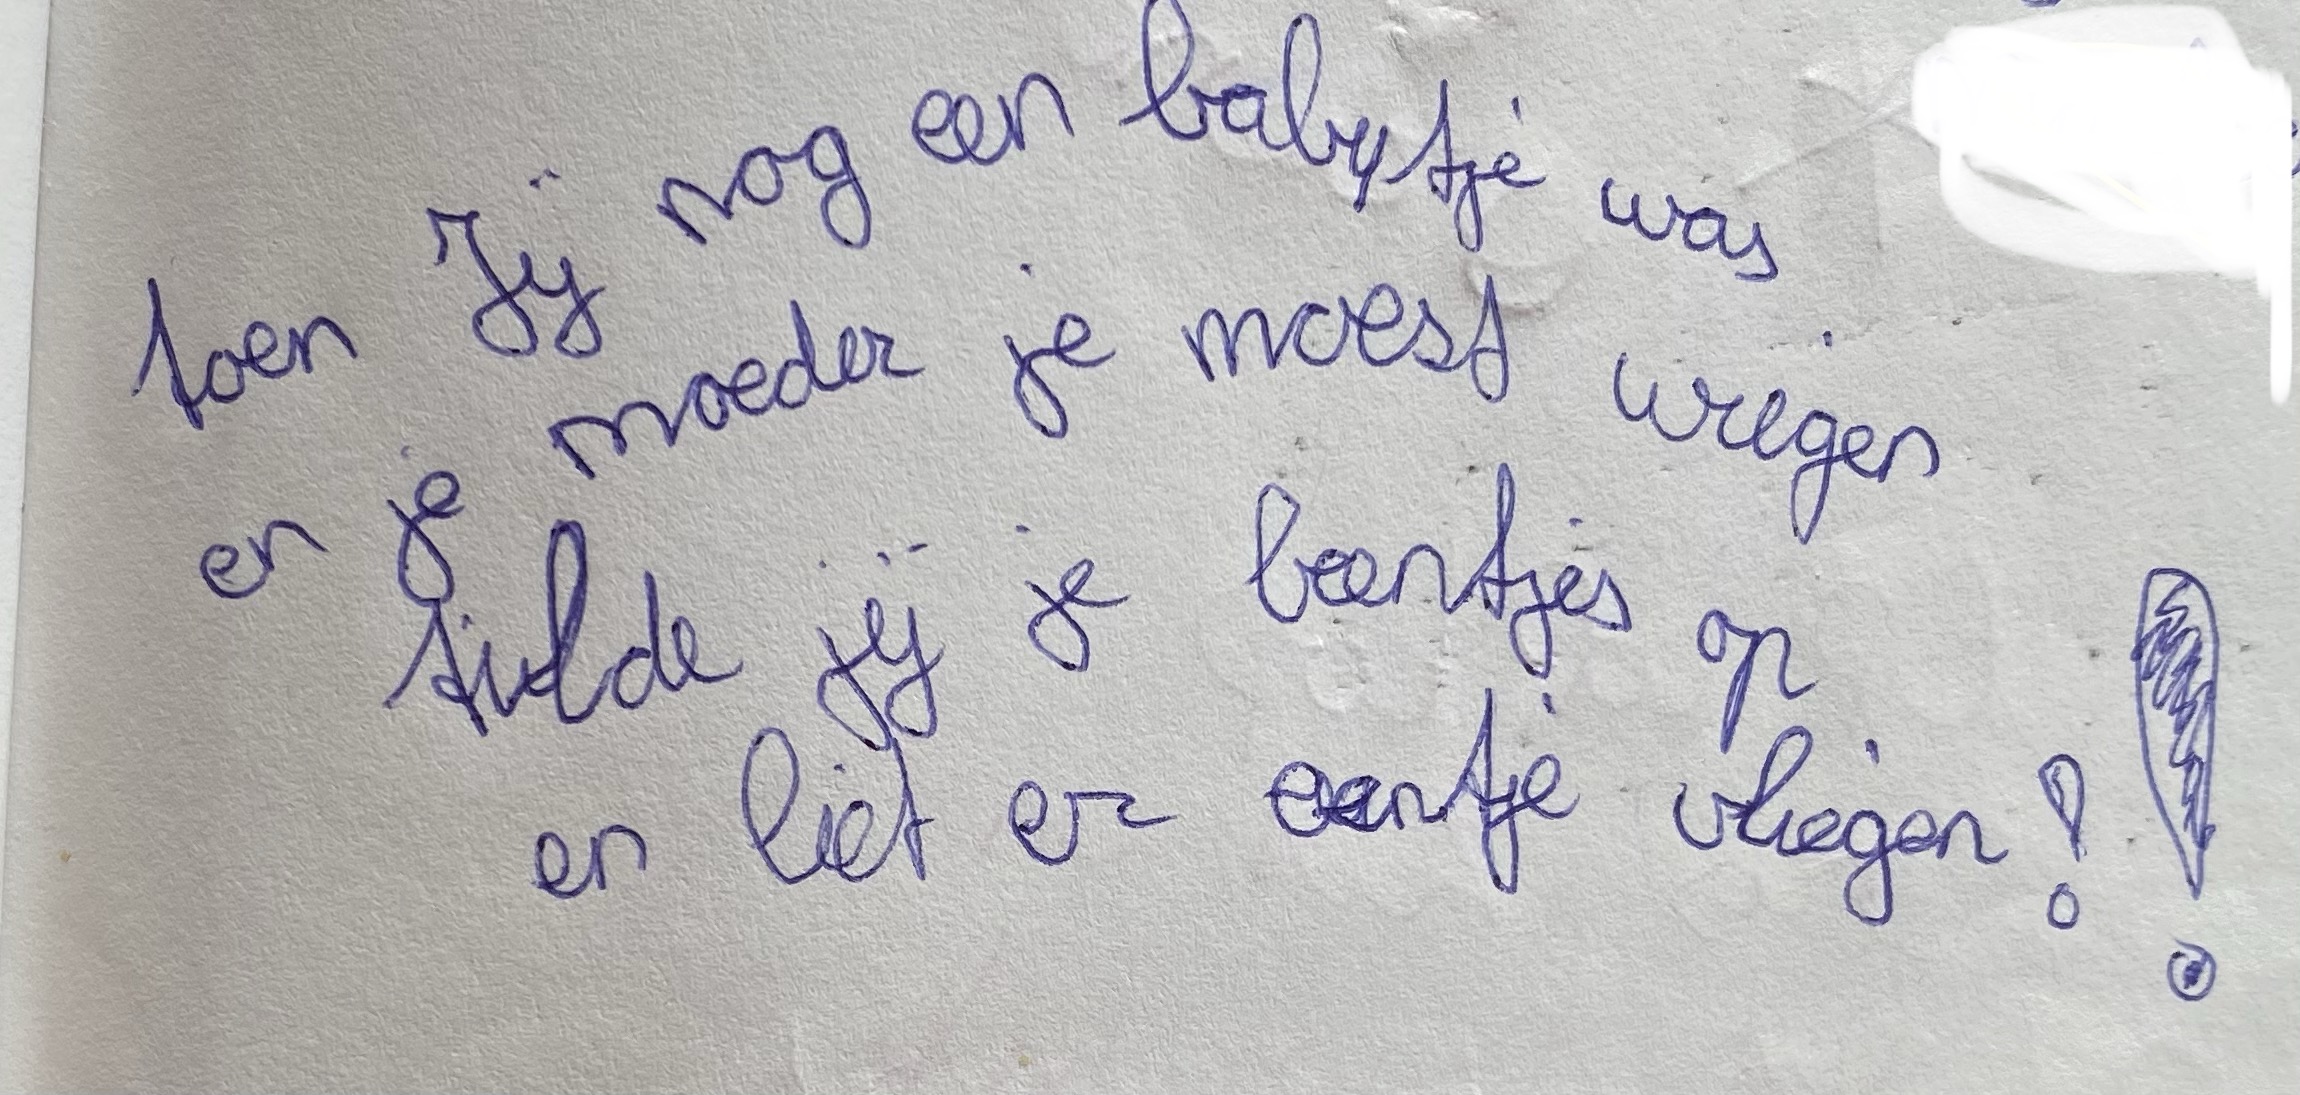 toen Jij nog een babytje was
en je moeder je moest wiegen
tilde jij je beentjes op
en liet er eentje vliegen! !